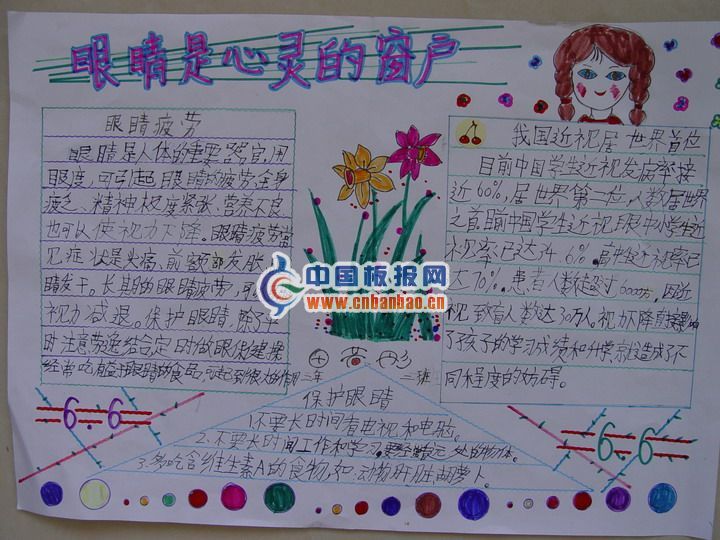 眼睛是心灵的窗户
眼睛疲劳
眼睛是人体的重要器官,用
眼过度,可引起眼睛的疲劳,全身
疲乏、精神极度紧张、营养不良
也可以使视力下降。眼睛疲劳常
见症状是头痛、前额部发胀、
睛发干。长期的眼睛疲劳,可
视力减退。保护眼睛,除了平
时注意劳逸结合定时做眼保健操
经常吃 眼睛的食品,可起到很大的作用
我国近视居世界首位
目前中国学生近视发病率接
近60%,居世界第二位,人数居世界
之首目前中国学生近视眼中小学生近
视率已达 .6%。高中生近视率已
达70%。患者人数 超过6000万。因近
视致盲人数达30万人。视力下降直接影响
了孩子的学习成绩和升学,就造成了不
同程度的妨碍。
中国板报网
www.cnbanbao.cn
三年 三班
保护眼睛
1.不要长时间看电视和电脑。
2.不要长时间工作和学习, 处的物体。
3.多吃含维生素A的食物,如,动物肝脏胡萝卜。
6÷6
6·6